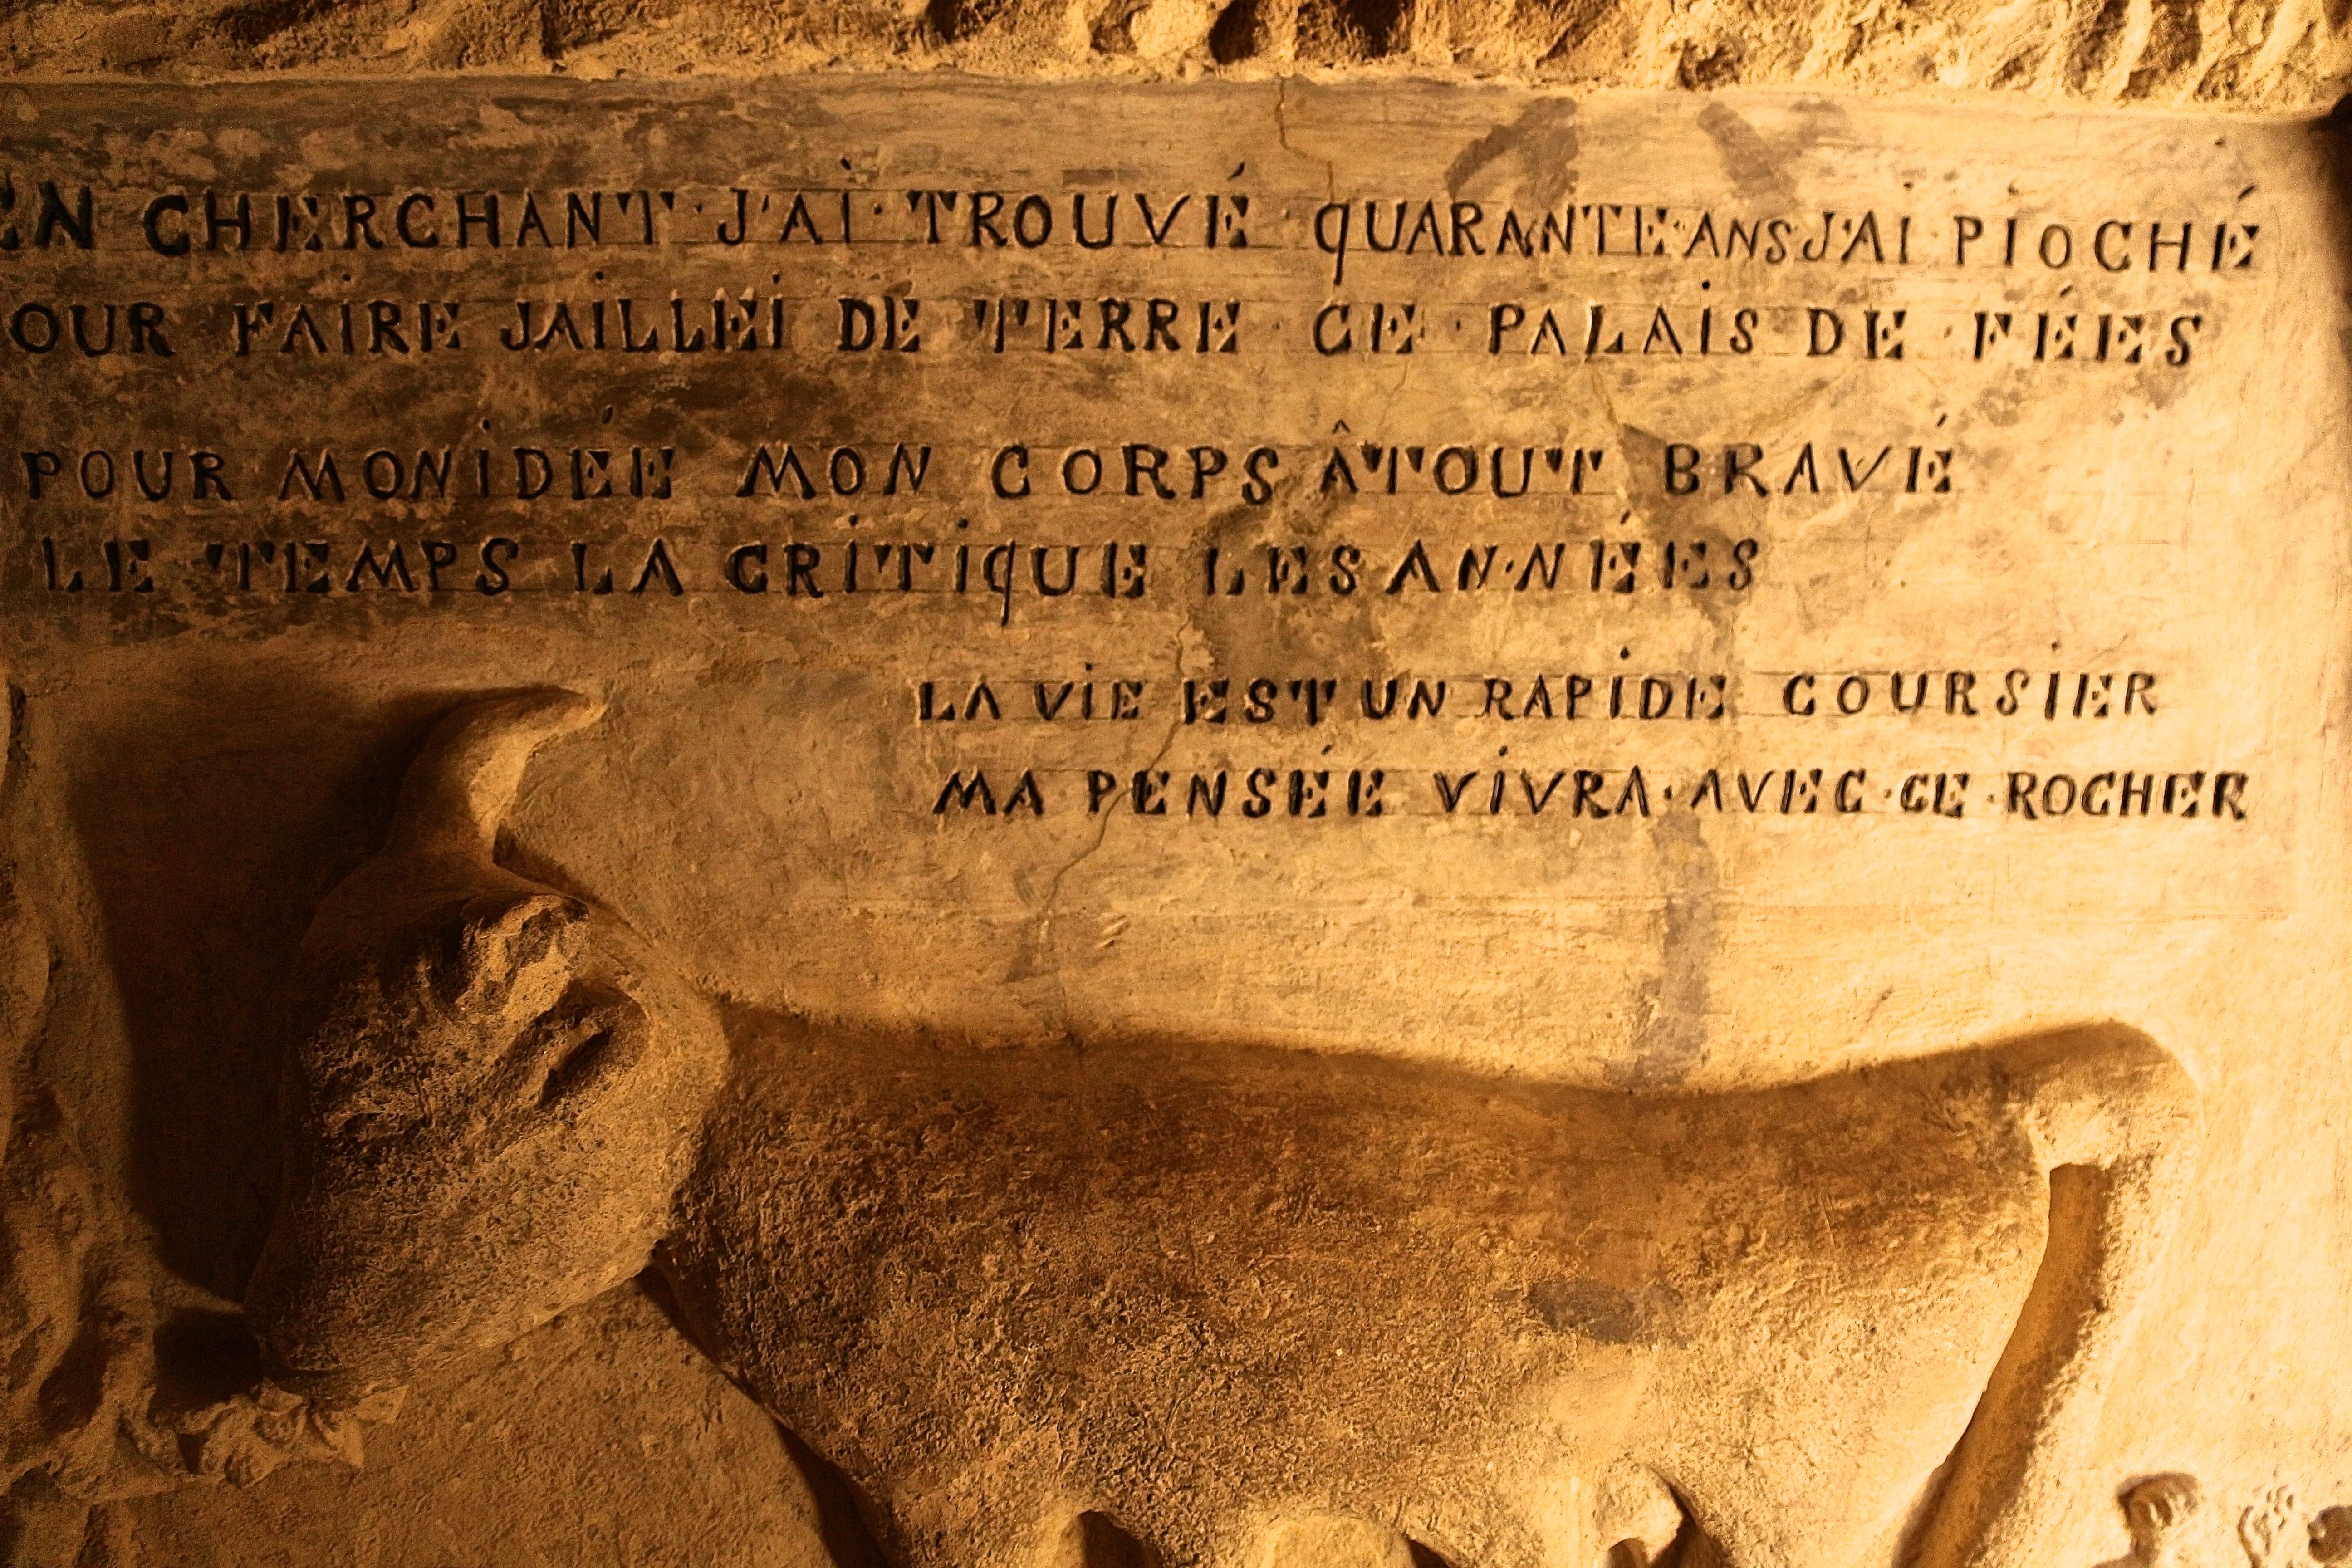 EN CHERCHANT · J'AI · TROUVÉ · QUARANTE · ANS J'AI · PIOCHÉ
OUR FAIRE JAILLEI DE TERRE · CE · PALAIS DE · FÉES
POUR MON IDÉE MON CORPS Â TOUT BRAVÉ
LE TEMPS LA CRITIQUE LES AN·NÉES
LA VIE EST UN RAPIDE COURSIER
MA PENSÉE VIVRA · AVEC · CE · ROCHER